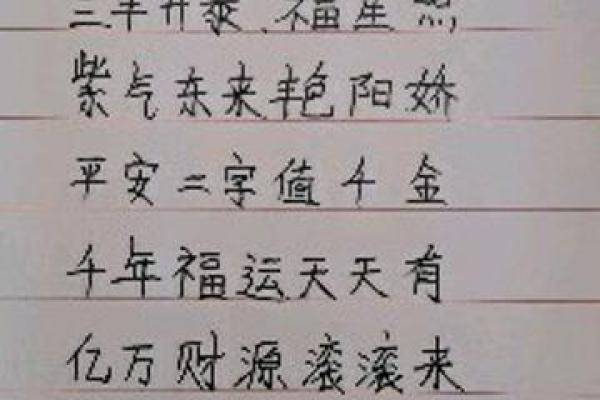 三羊开泰福星照
紫气东来艳阳娇
平安二字值千金
千年福运天天有
亿万财源滚滚来